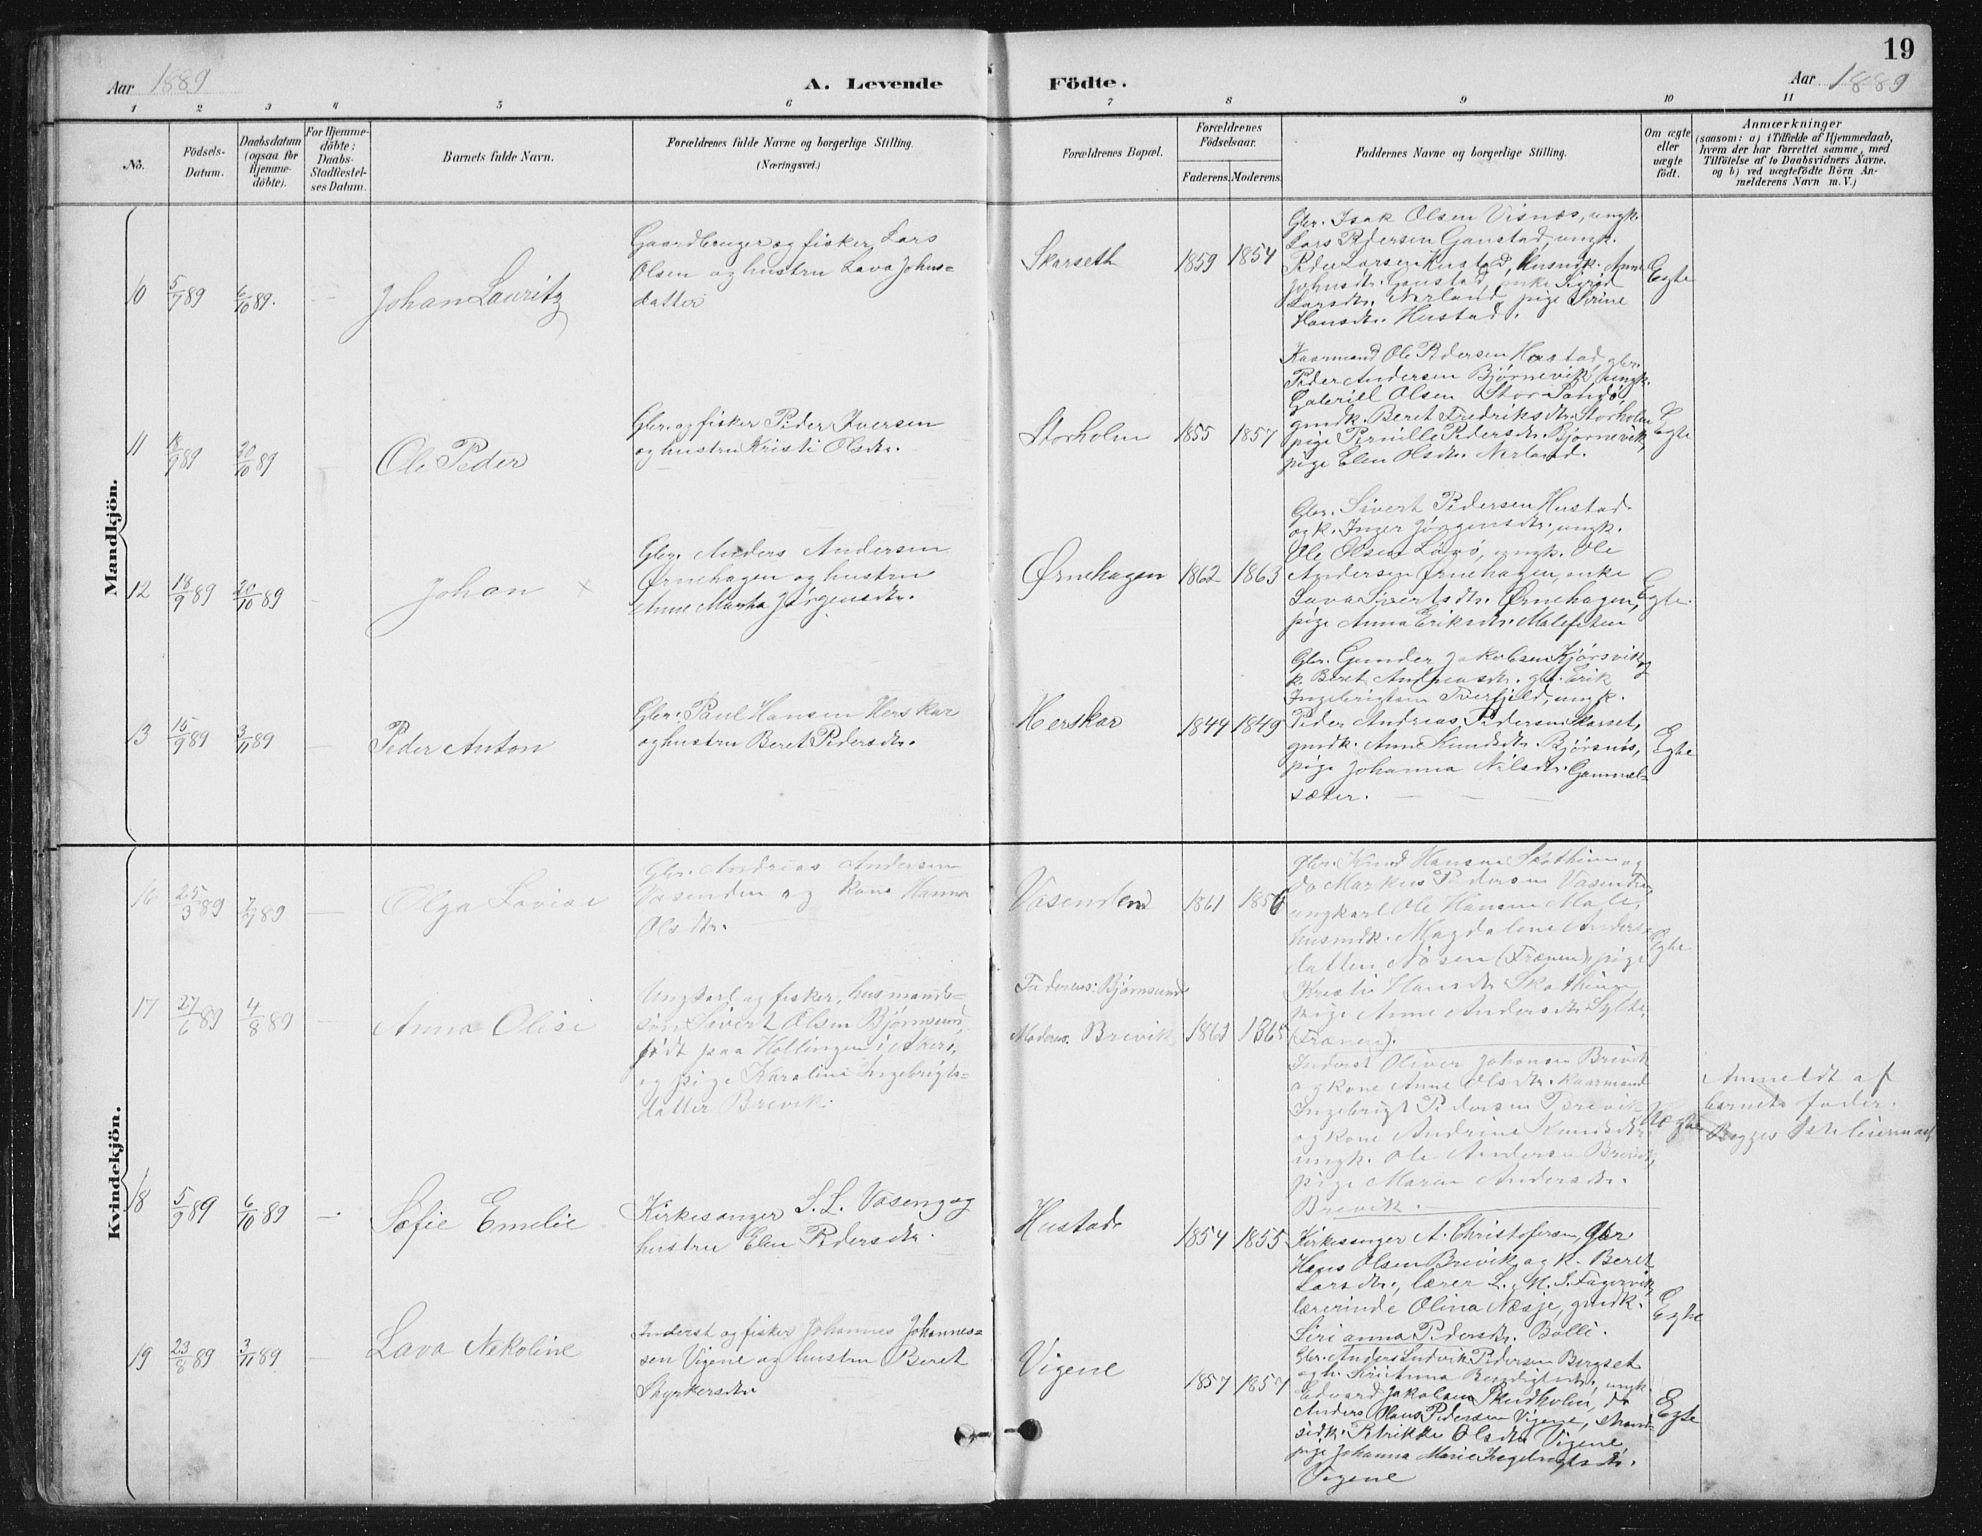 19
Aar 1889
A. Levende
Födte.
Aar 1889
1 2 3 4 5 6 7 8 9 10 11
No.
Födsels-
Datum.
Daabsdatum
(ogsaa for
Hjemme-
döbte).
For Hjemme-
döbte;
Daabs-
Stadfæstel-
ses Datum.
Barnets fulde Navn.
Forældrenes fulde Navne og borgerlige Stilling.
(Næringsvei.)
Forældrenes Bopæl.
Forældrenes
Födselsaar.
Faderens. Moderens.
Faddernes Navne og borgerlige Stilling.
Om ægte
eller
uægte
födt.
Anmærkninger
(saasom: a) i Tilfælde af Hjemmedaab,
hvem der har forrettet samme, med
Tilföielse af to Daabsvidners Navne,
og b) ved uægtefödte Börn An-
melderens Navn m. V.)
Mandkjön.
10
5/7 89
6/10 89.
Johan Lauritz
Gaardbruger og fisker Lars
Olsen og hustru Lava Johns=
datter
Skarseth
1859 1854
Gbr. Isak Olsen Visnæs, ungk.
Lars Pedersen Gaustad, ungk.
Peder Larsen Hustad, husmdk. Anne
Johnsdtr. Gaustad, enke Sigrid
Larsdtr. Nerland, pige Serine
Hansdtr. Hustad.
Egte
11
18/9 89
20/10 89
Ole Peder
Gbr. og fisker Peder Iversen
og hustru Kristi Olsdtr.
Storholm
1855 1857
Kaarmand Ole Pedersen Hustad, gbr.
Peder Andersen Bjørnevik, ungk.
Gabriel Olsen Stor-Sandø,
gmdk. Beret Fredriksdtr. Storholm
pige Pernille Pedersdtr. Bjørnevik,
pige Elen Olsdtr. Nerland.
Egte
12
18/9 89
20/10 89
Johan ×
Gbr. Anders Andersen
Ørnehagen og hustru
Anne Martha Jørgensdtr.
Ørnehagen
1862 1863
Gbr. Sivert Pedersen Hustad
og k. Inger Jørgensdtr., ungk.
Ole Olsen Løvø, ungk. Ole
Andersen Ørnehagen, enke
Lava Sivertsdtr. Ørnehagen,
pige Anna Eriksdtr. Malefeten
Egte.
13
15/9 89
3/11 89
Peder Anton
Gbr. Paul Hansen Herskar
og hustru Beret Pedersdtr.
Herskar
1844 1849
Gbr. Gunder Jakobsen Kjørsvik og
k. Beret Andreasdtr. gbr. Erik
Ingebrigtsen Tverfjeld, ungk.
Peder Andreas Pedersen Skarset,
gmdk. Anne Knudsdtr. Bjørsnøs,
pige Johanna Nilsdtr. Gammel-
sæter.
Egte
Kvindekjön.
16
25/3 89
7/7 89
Olga Lovise
Gbr. Andreas Andersen
Vasenden og kone Hanna
Olsdtr.
Vasenden
1861 1856
Gbr. Knud Hansen Skothein og
do Markus Pedersen Vasenden,
ungkarl Ole Hansen Male,
husmdk. Magdalene Anders-
datter Nøsen (Frænen), pige
Kristi Hansdtr. Skothein,
pige Anne Andersdtr. Sylte,
(Frænen).
Egte
17
27/6 89
4/8 89
Anna Olise
Ungkarl og fisker, husmands=
søn Sivert Olsen Bjørnsund,
født paa Hollingen i Akerø,
og pige Karoline Ingebrigts=
datter Brevik.
Faderens: Bjørnsund
Moderens. Brevik
1863 1865
Inderst Oliver Johansen Brevik
og kone Anne Olsdtr. kaarmand
Ingebrigt Pedersen Brevik
og kone Andrine Knudsdtr.
ungk. Ole Andersen Brevik,
pige Maren Andersdtr.
Brevik.
Uægte
Anmeldt af
barnets fader.
Begges 1ste leiermaal
18
5/9 89
6/10 89
Sofie Emelie
Kirkesanger S. L. Vaseng og
hustru Elen Pedersdtr.
Hustad
1854 1855
Kirkesanger A. Christofersen, gbr
Hans Olsen Brevik og k. Beret
Larsdtr., lærer L. M. S. Fagervik,
lærerinde Olina Næsje, gmdk.
Sirianna Pedersdtr. Bolli.
Egte
19
23/8 89
3/11 89
Lava Nekoline
Inderst og fisker Johannes Johannes=
sen Vigene og hustru Beret
Styrkersdtr
Vigene
1857 1857
Gbr. Anders Ludvik Pedersen Bergset
og h. Sirianna Bendigtsdtr., ungk.
Edvard Jakobsen Skudholm, do
Anders Hans Pedersen Vigene, strand-
sidk. Petrikke Olsdtr. Vigene,
pige Johanna Marie Ingebrigtsdtr.
Vigene
Egte